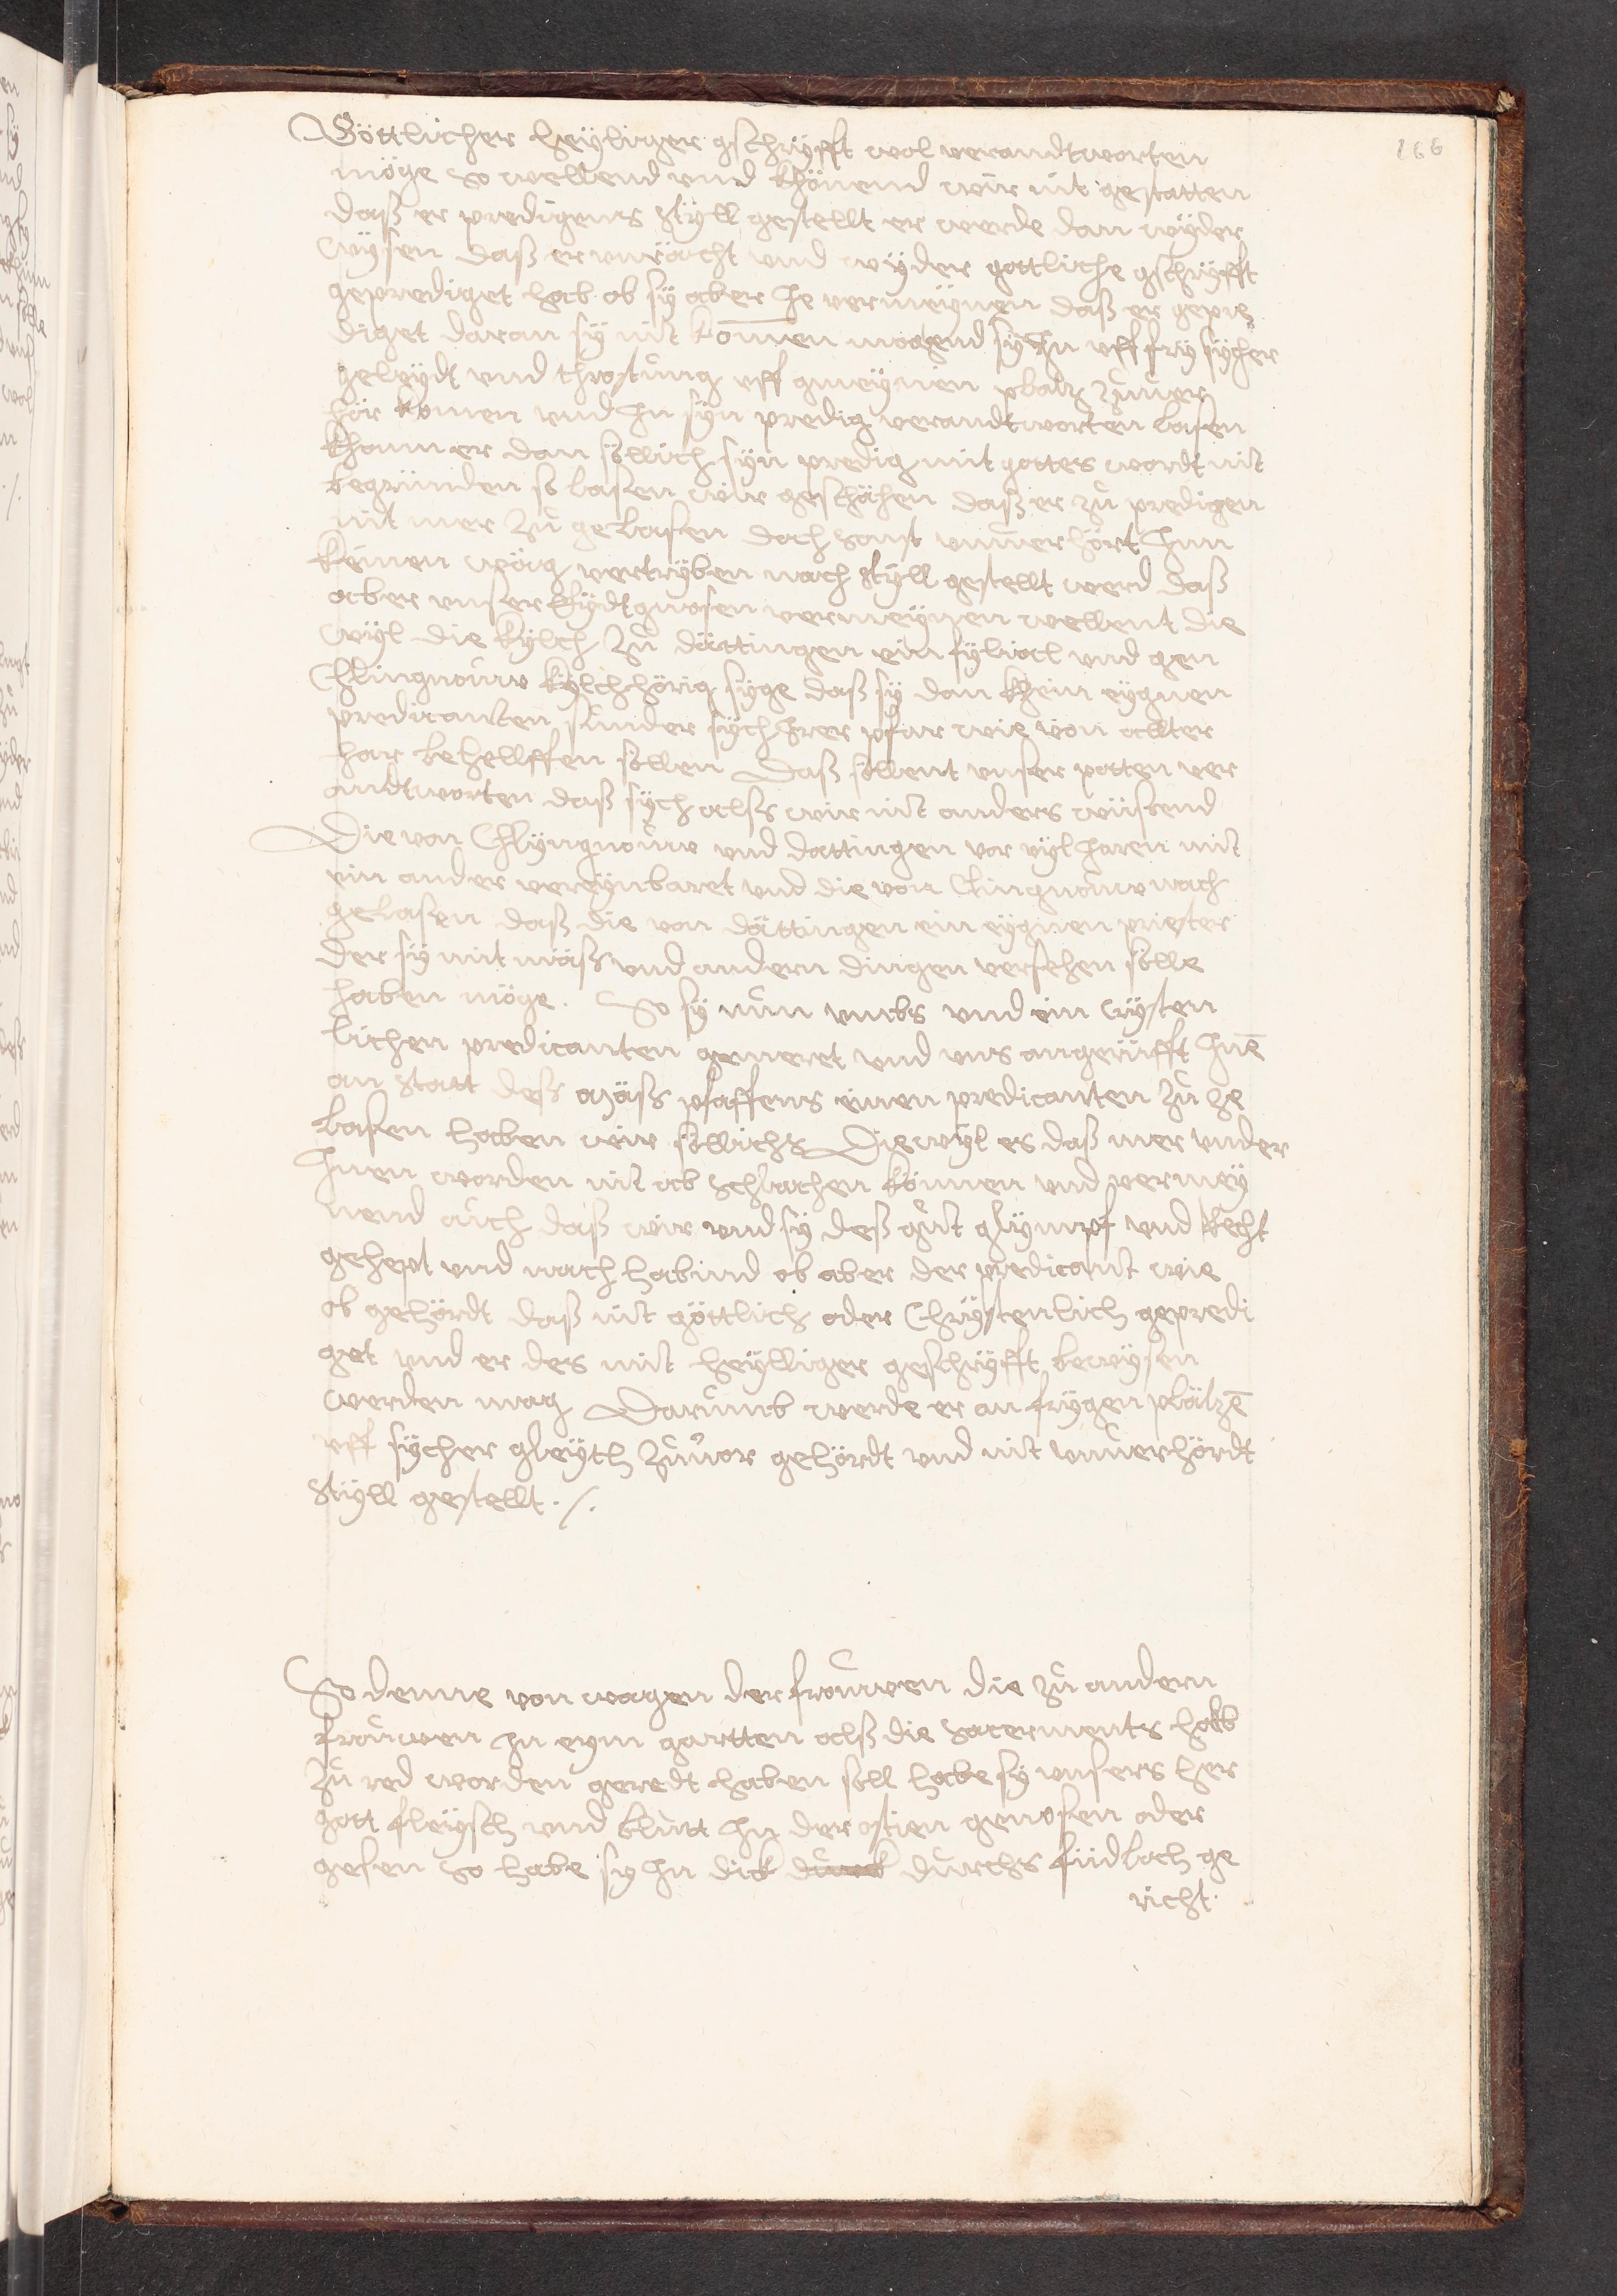 166
Göttlicher heÿliger gschrÿfft wol verandtworten
möge so wellend vnd khönend wir nit gestatten
daß er predigens stÿll gestellt er werde dan wÿder
wÿsen daß er vnrächt vnd wÿder gottliche gschrÿfft
geprediget hab ob sÿ aber he vermeÿnen daß er gepre
diget daran sÿ nit kommen mogend sÿ Jn vff frÿ sÿcher
geleÿdt vnd throstung vff gmeÿnen platz zuuer
hör komen vnd Jn sÿn predig verandtworten lasen
khann er dan söllich sÿn predig mit gottes wordt nit
begründen so lasen wir geschähen daß er zů predigen
nit mer zů gelasen doch sonst vnuerhört Jnn
keinen wäg vertrÿben nach stÿll gestellt werd daß
aber vnser Eÿdtgnosen vermeÿnen wellent die
wÿl die kÿlch zů dättingen ein fÿlial vnd gen
Clingnouw kÿlchhörig sÿge daß sÿ dan khein eÿgnen
predicanten sunder sÿch Jrer pfar wie von allter
har behellffen söllen Daß söllent vnser potten ver
andtworten daß sÿch alß wir nit anders wüsend
Die von Chlÿngnouw vnd dattingen vor vÿl Jaren mit
ein ander vereÿnbaret vnd die von Clingnouw nach
gelasen daß die von dättingen ein eÿgnen priester
der sÿ mit mäss vnd andern dingen versehen sölle
haben möge. So sÿ nun vmbs vnd ein crÿsten
lichen predicanten gemeret vnd vns angerüfft Jnē
an statt deß mäss pfaffens einen predicanten zů ze
lasen haben wir söllichs Diewÿl es daß mer vnder
Jnen worden nit ab schlachen können vnd vermeÿ
nend ouch daß wir vnd sÿ deß gůt glÿmpf vnd Recht
gehept vnd nach habind ob aber der predicant wie
ob gehördt daß nit göttlich oder Chrÿstenlich gepredi
get vnd er des mit heÿlliger geschrÿfft bewÿsen
werden mag Darumb werde er an frÿgen plätzē
vff sÿcher gleÿth zůuor gehördt vnd nit vnuerhördt
stÿll gestellt ./.
So denne von wägen der frouwen die zů andern
frouwen Jn eym gartten alß die sacerments halb
zů red worden geredt haben soll habe sÿ vnsers her
gott fleÿsch vnd blutt Jn der ostien genosen oder
gesen so habe sÿ Jn dick durchs füdloch ge
richt.